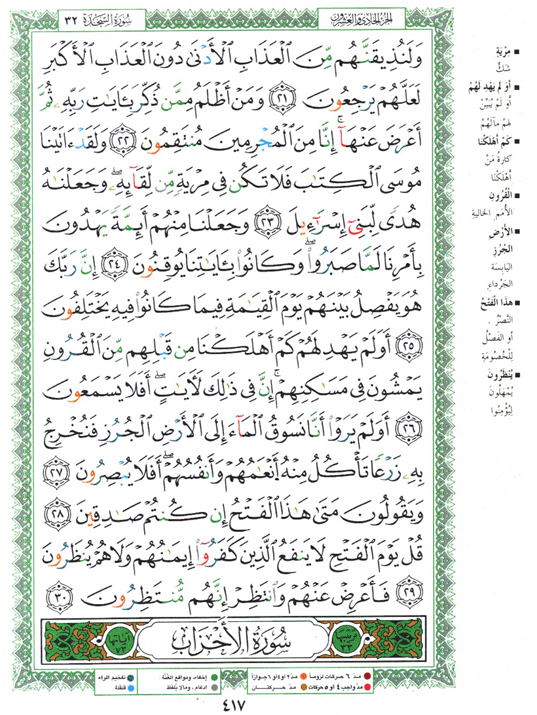 الجزء الحادي والعشرون
سورة السجدة ٣٢
وَلَنُذِيقَنَّهُم مِّنَ ٱلْعَذَابِ ٱلْأَدْنَىٰ دُونَ ٱلْعَذَابِ ٱلْأَكْبَرِ
لَعَلَّهُمْ يَرْجِعُونَ ٢١ وَمَنْ أَظْلَمُ مِمَّن ذُكِّرَ بِـَٔايَـٰتِ رَبِّهِۦ ثُمَّ
أَعْرَضَ عَنْهَآ ۚ إِنَّا مِنَ ٱلْمُجْرِمِينَ مُنتَقِمُونَ ٢٢ وَلَقَدْ ءَاتَيْنَا
مُوسَى ٱلْكِتَـٰبَ فَلَا تَكُن فِى مِرْيَةٍ مِّن لِّقَآئِهِۦ ۖ وَجَعَلْنَـٰهُ
هُدًى لِّبَنِىٓ إِسْرَٰٓءِيلَ ٢٣ وَجَعَلْنَا مِنْهُمْ أَئِمَّةً يَهْدُونَ
بِأَمْرِنَا لَمَّا صَبَرُوا۟ ۖ وَكَانُوا۟ بِـَٔايَـٰتِنَا يُوقِنُونَ ٢٤ إِنَّ رَبَّكَ
هُوَ يَفْصِلُ بَيْنَهُمْ يَوْمَ ٱلْقِيَـٰمَةِ فِيمَا كَانُوا۟ فِيهِ يَخْتَلِفُونَ
٢٥ أَوَلَمْ يَهْدِ لَهُمْ كَمْ أَهْلَكْنَا مِن قَبْلِهِم مِّنَ ٱلْقُرُونِ
يَمْشُونَ فِى مَسَـٰكِنِهِمْ ۚ إِنَّ فِى ذَٰلِكَ لَـَٔايَـٰتٍ ۖ أَفَلَا يَسْمَعُونَ
٢٦ أَوَلَمْ يَرَوْا۟ أَنَّا نَسُوقُ ٱلْمَآءَ إِلَى ٱلْأَرْضِ ٱلْجُرُزِ فَنُخْرِجُ
بِهِۦ زَرْعًا تَأْكُلُ مِنْهُ أَنْعَـٰمُهُمْ وَأَنفُسُهُمْ ۖ أَفَلَا يُبْصِرُونَ ٢٧
وَيَقُولُونَ مَتَىٰ هَـٰذَا ٱلْفَتْحُ إِن كُنتُمْ صَـٰدِقِينَ ٢٨
قُلْ يَوْمَ ٱلْفَتْحِ لَا يَنفَعُ ٱلَّذِينَ كَفَرُوٓا۟ إِيمَـٰنُهُمْ وَلَا هُمْ يُنظَرُونَ
٢٩ فَأَعْرِضْ عَنْهُمْ وَٱنتَظِرْ إِنَّهُم مُّنتَظِرُونَ ٣٠
ترتيبها ٣٣
سُورَةُ الأَحْزَابِ
آياتها ٧٣
مِرْيَةٍ
شَكٍّ
أَوَ لَمْ يَهْدِ لَهُمْ
أَوَ لَمْ يُبَيَّنْ
لَهُمْ مَآلُهُمْ
كَمْ أَهْلَكْنَا
كَثْرَةَ مَنْ
أَهْلَكْنَا
الْقُرُونِ
الأُمَمِ الخالِيةِ
الأَرْضِ
الجُرُزِ
اليَابِسةِ
الجَرْدَاءِ
هذا الْفَتْحُ
النَّصْرُ
أو الفَصْلُ
لِلْخُصُومةِ
يُنْظَرُونَ
يُمْهَلُونَ
لِيُؤْمِنُوا
مدّ ٦ حركات لزوماً
مدّ ٢ أو ٤ أو ٦ جوازاً
إخفاء، ومواقع الغُنَّة
تفخيم الراء
مدّ واجب ٤ أو ٥ حركات
مدّ حركتان
إدغام، وما لا يُلفظ
قلقلة
٤١٧